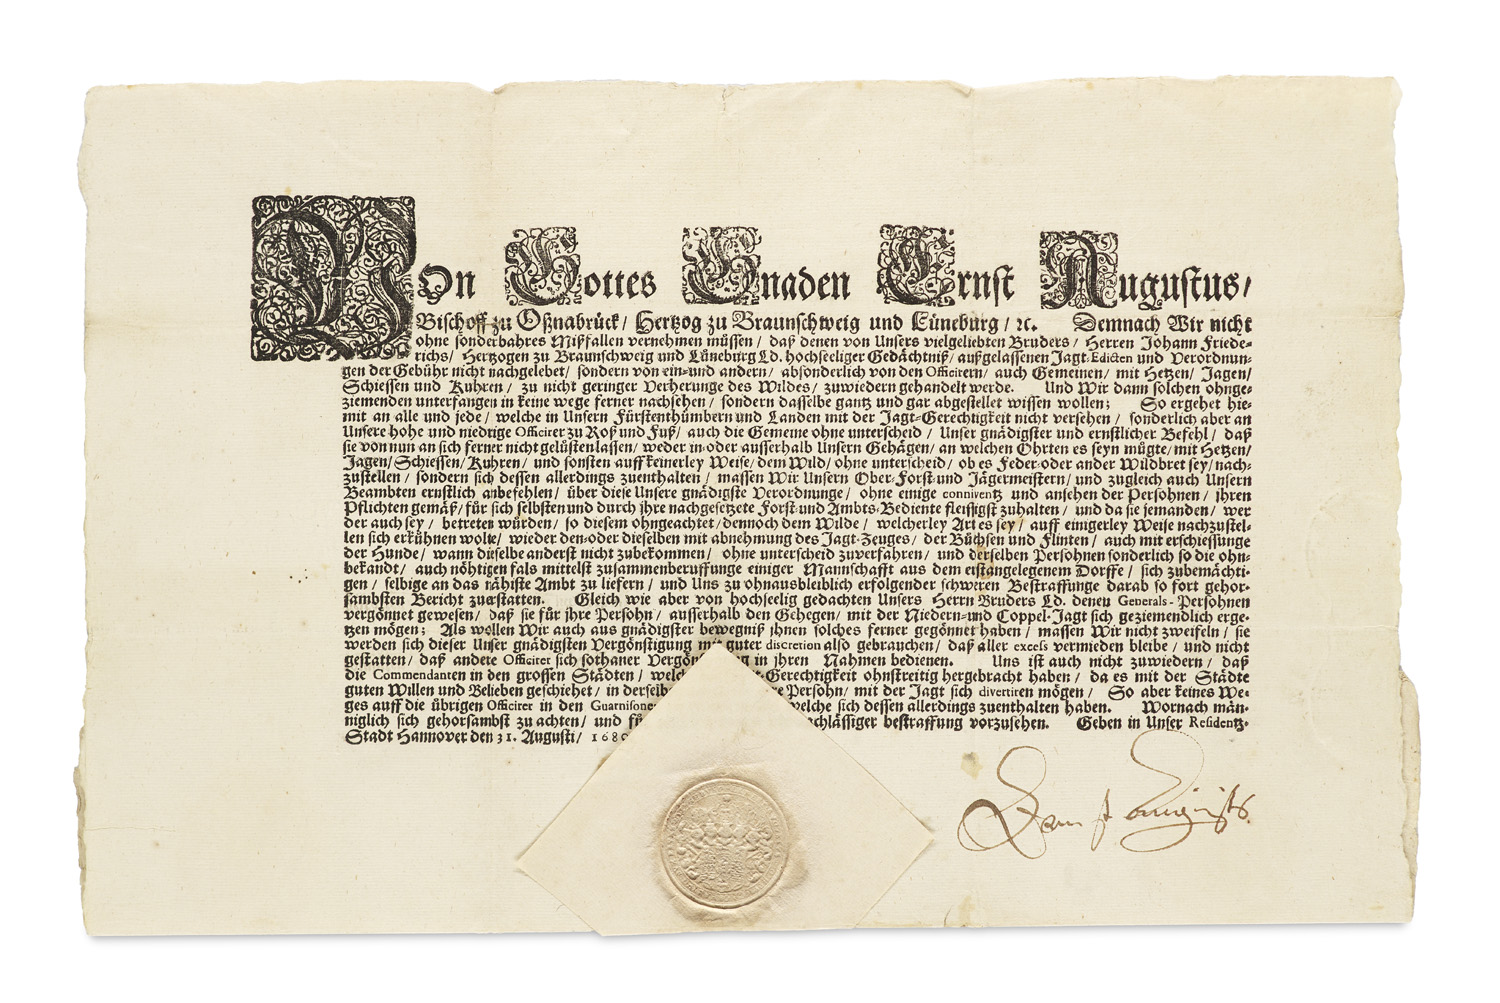 Von Gottes Gnaden Ernst Augustus/
Bischoff zu Oßnabrück/ Hertzog zu Braunschweig und Lüneburg/ ꝛc. Demnach Wir nicht
ohne sonderbahres Mißfallen vernehmen müssen/ daß denen von Unsers vielgeliebten Bruders/ Herren Johann Friede-
richs/ Hertzogen zu Braunschweig und Lüneburg Ld. hochseeliger Gedächtniß/ außgelassenen Jagt-Edicten und Verordnun-
gen der Gebühr nicht nachgelebet/ sondern von ein-und andern/ absonderlich von den Officirern/ auch Gemeinen/ mit Hetzen/ Jagen/
Schiessen und Kuhren/ zu nicht geringer Verherunge des Wildes/ zuwiedern gehandelt werde. Und Wir dann solchen ohnge-
ziemenden unterfangen in keine wege ferner nachsehen/ sondern dasselbe gantz und gar abgestellet wissen wollen; So ergehet hie-
mit an alle und jede/ welche in Unsern Fürstenthümbern und Landen mit der Jagt-Gerechtigkeit nicht versehen/ sonderlich aber an
Unsere hohe und niedrige Officirer zu Roß und Fuß/ auch die Gemeine ohne unterscheid/ Unser gnädigster und ernstlicher Befehl/ daß
sie von nun an sich ferner nicht gelüsten lassen/ weder in-oder ausserhalb Unsern Gehägen/ an welchen Ohrten es seyn mügte/ mit Hetzen/
Jagen/ Schiessen/ Kuhren/ und sonsten auff keinerley Weise/ dem Wild/ ohne unterscheid/ ob es Feder-oder ander Wildbret sey/ nach-
zustellen/ sondern sich dessen allerdings zuenthalten/ massen Wir Unsern Ober-Forst-und Jägermeistern/ und zugleich auch Unsern
Beambten ernstlich anbefehlen/ über diese Unsere gnädigste Verordnunge/ ohne einige conniventz und ansehen der Persohnen/ ihren
Pflichten gemäß/ für sich selbsten und durch ihre nachgesetzete Forst-und Ambts-Bediente fleissigst zuhalten/ und da sie jemanden/ wer
der auch sey/ betreten würden/ so diesem ohngeachtet/ dennoch dem Wilde/ welcherley Art es sey/ auff einigerley Weise nachzustel-
len sich erkühnen wolte/ wieder den-oder dieselben mit abnehmung des Jagt-Zeuges/ der Büchsen und Flinten/ auch mit erschiessunge
der Hunde/ wann dieselbe anderst nicht zubekommen/ ohne unterscheid zuverfahren/ und derselben Persohnen sonderlich so die ohn-
bekandt/ auch nöhtigen fals mittelst zusammenberuffunge einiger Mannschafft aus dem erstangelegenem Dorffe/ sich zubemächti-
gen/ selbige an das nähiste Ambt zu liefern/ und Uns zu ohnausbleiblich erfolgender schweren Bestraffunge darab so fort gehor-
sambsten Bericht zuerstatten. Gleich wie aber von hochseelig gedachten Unsers Herrn Bruders Ld. denen Generals-Persohnen
vergönnet gewesen/ daß sie für ihre Persohn/ ausserhalb den Gehegen/ mit der Niedern-und Coppel-Jagt sich geziemendlich erge-
tzen mögen; Als wollen Wir auch aus gnädigster bewegniß ihnen solches ferner gegönnet haben/ massen Wir nicht zweifeln/ sie
werden sich dieser Unser gnädigsten Vergönstigung mit guter discretion also gebrauchen/ daß aller excess vermieden bleibe/ und nicht
gestatten/ daß andere Officirer sich sothaner in ihren Nahmen bedienen. Uns ist auch nicht zuwiedern/ daß
die Commendanten in den grossen Städten/ Gerechtigkeit ohnstreitig hergebracht haben/ da es mit der Städte
guten Willen und Belieben geschiehet/ in Persohn/ mit der Jagt sich divertiren mögen/ So aber keines We-
ges auff die übrigen Officirer in den welche sich dessen allerdings zuenthalten haben. Wornach män-
niglich sich gehorsambst zu achten/ und bestraffung vorzusehen. Geben in Unser Residentz-
Stadt Hannover den 31. Augusti/ 1680
Ernst Augusts